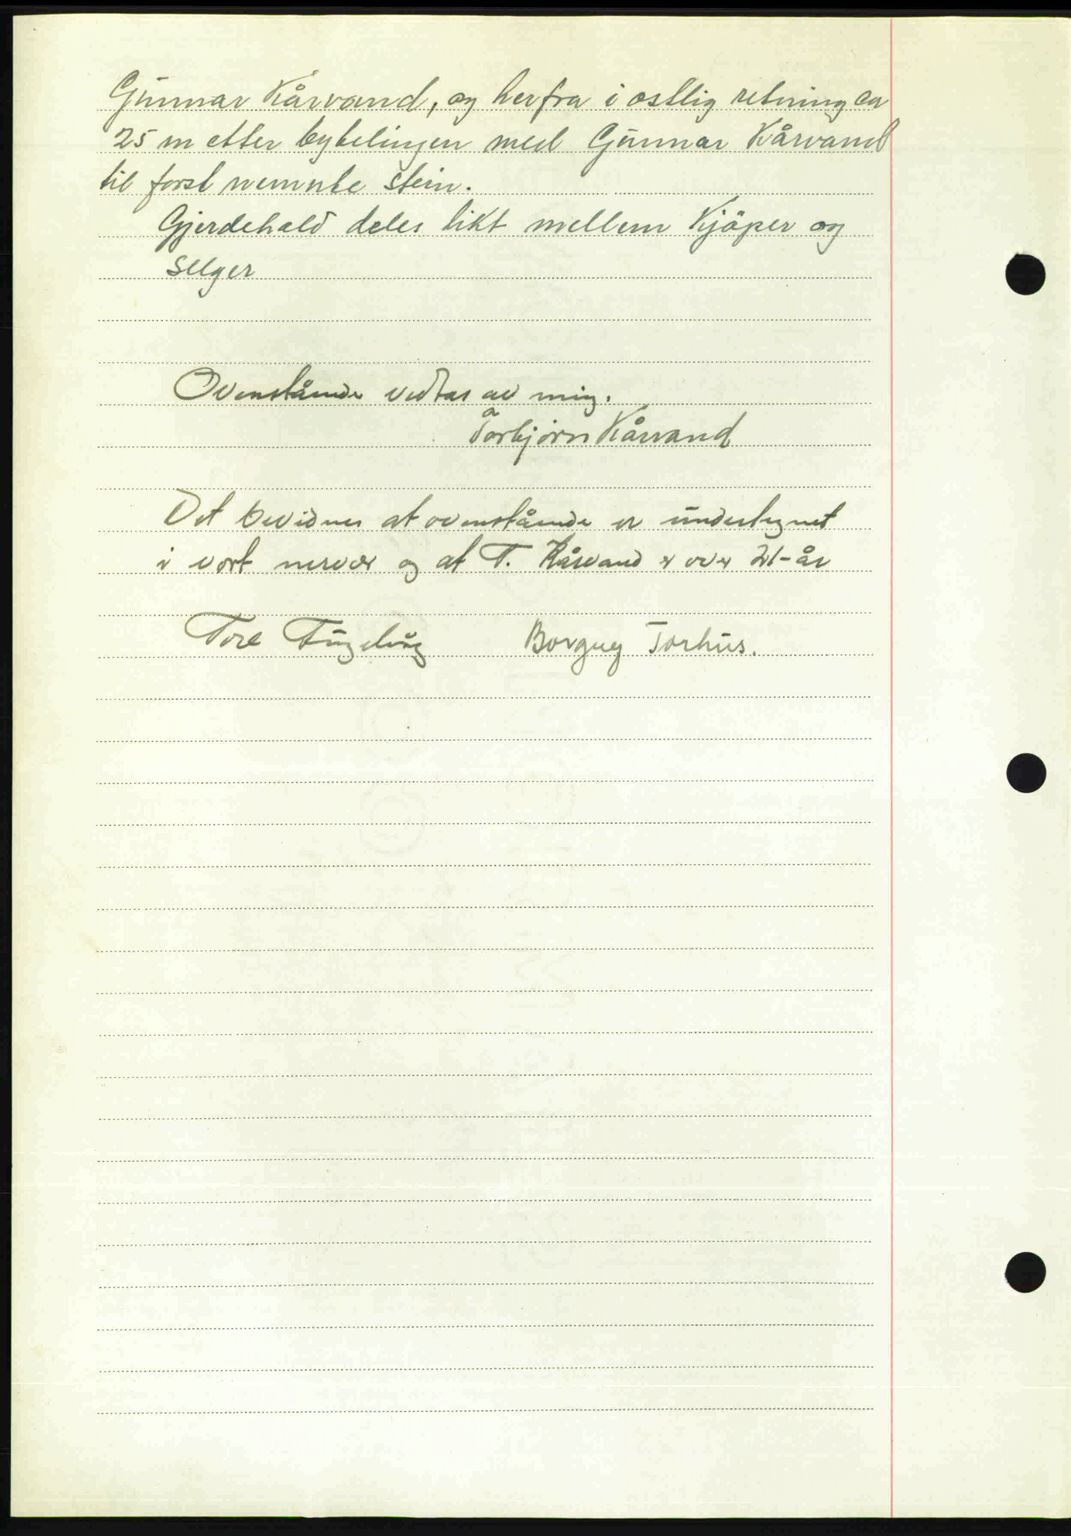 Gunnar Kårvand, og herfra i ostlig retning ca
25 m etter bytelingen med Gunnar Kårvand
til forst nemnte stein.
Gjerdehald deles likt mellem Kjöper og
selger
Ovenstående vedtas av mig.
Torbjørn Kårvand
Det bevidnes at ovenstående er undertegnet
i vort nervær og at T. Kårvand er over 21-år
Tore
Borguy Torhus.